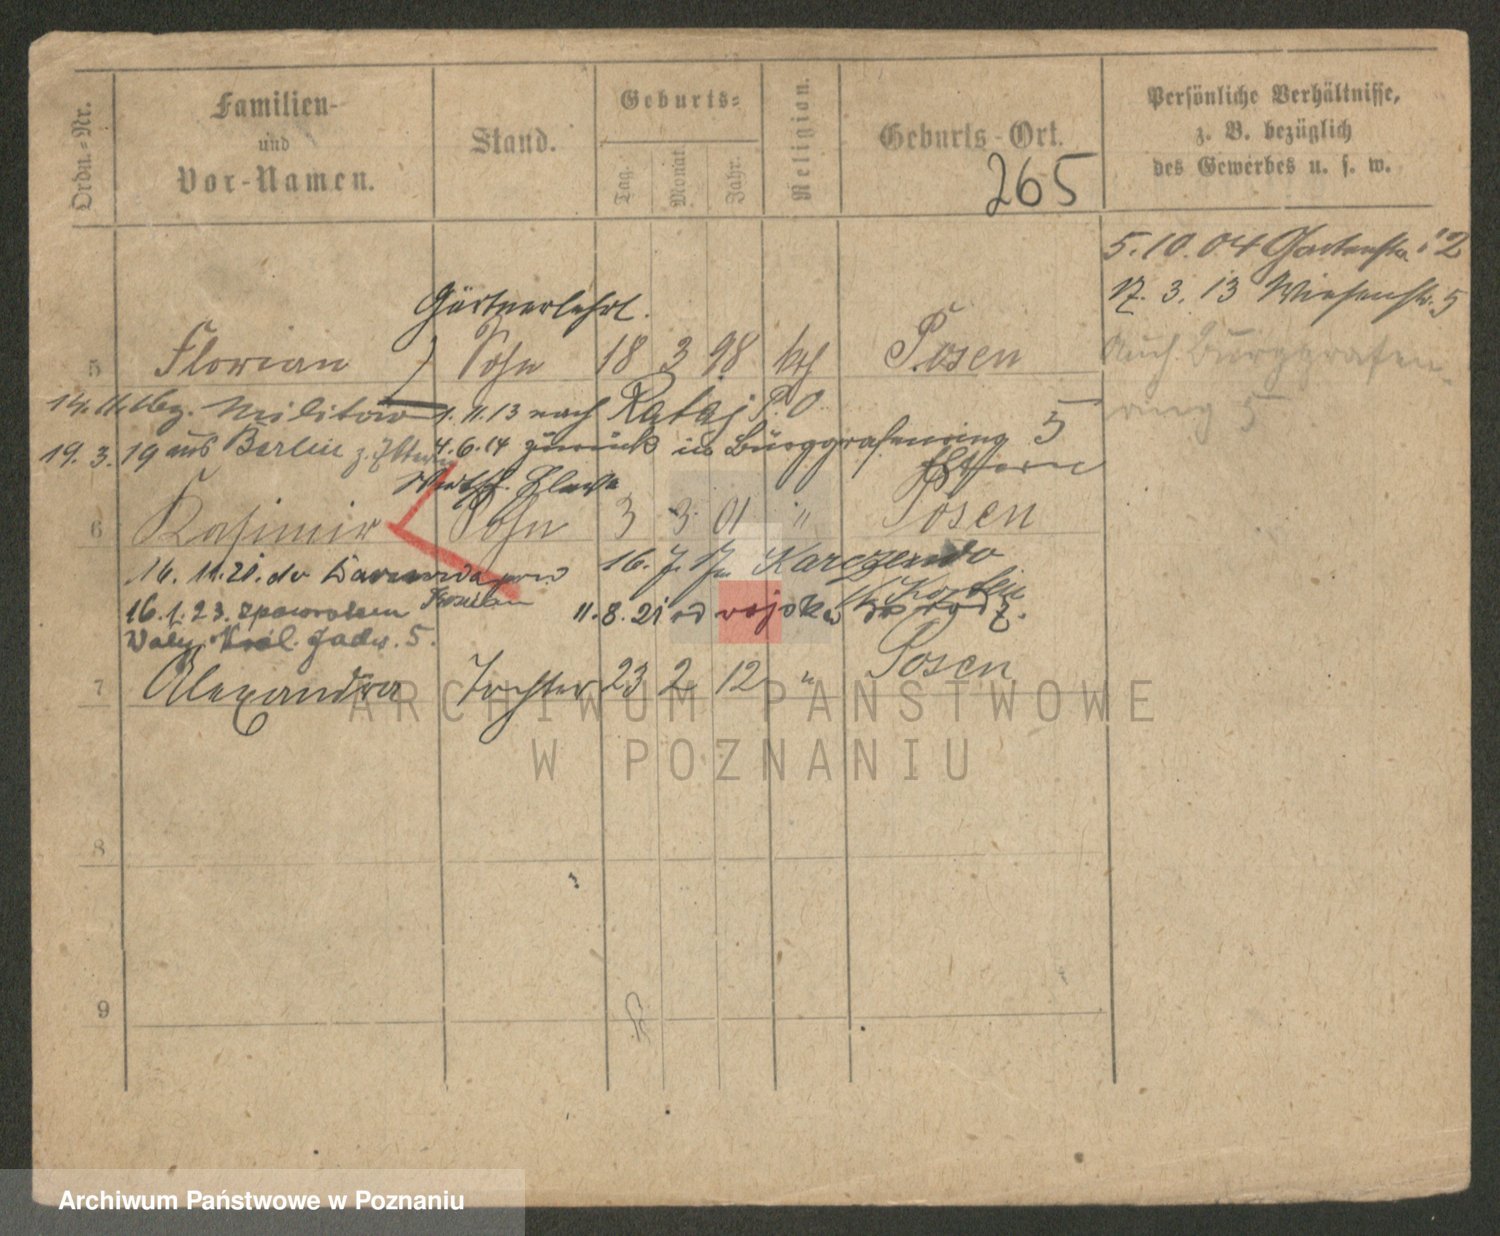 Ordn.-Nr.
Familien-
und
Vor-Namen.
Stand.
Geburts-
Tag.
Monat.
Jahr.
Religion.
Geburts-Ort.
265
Persönliche Verhältnisse,
z. B. bezüglich
des Gewerbes u. s. w.
5. 10. 04 Gartenstr. 12
17. 3. 13 Wiesenstr. 5
Auch Burggrafen-
ring 5
Gärtnerlehrl.
5 Florian Sohn 18 3 98 kth Posen
14. 11. Militär 1. 11. 13 nach Rataj P. O
19. 3. 19 aus Berlin z. Eltern 4. 6. 14 zurück in Burggrafenring 5
Eltern
6 Kasimir Sohn 3 3 01 " Posen
16. 11. 21. do
16. 7. Karczewo
16. 1. 23. z powrotem
11. 8. 21 od wojska do rodz.
Wały Król. Jadw. 5.
7 Alexandra Tochter 23 2 12 " Posen
8
9
ARCHIWUM PAŃSTWOWE
W POZNANIU
Archiwum Państwowe w Poznaniu